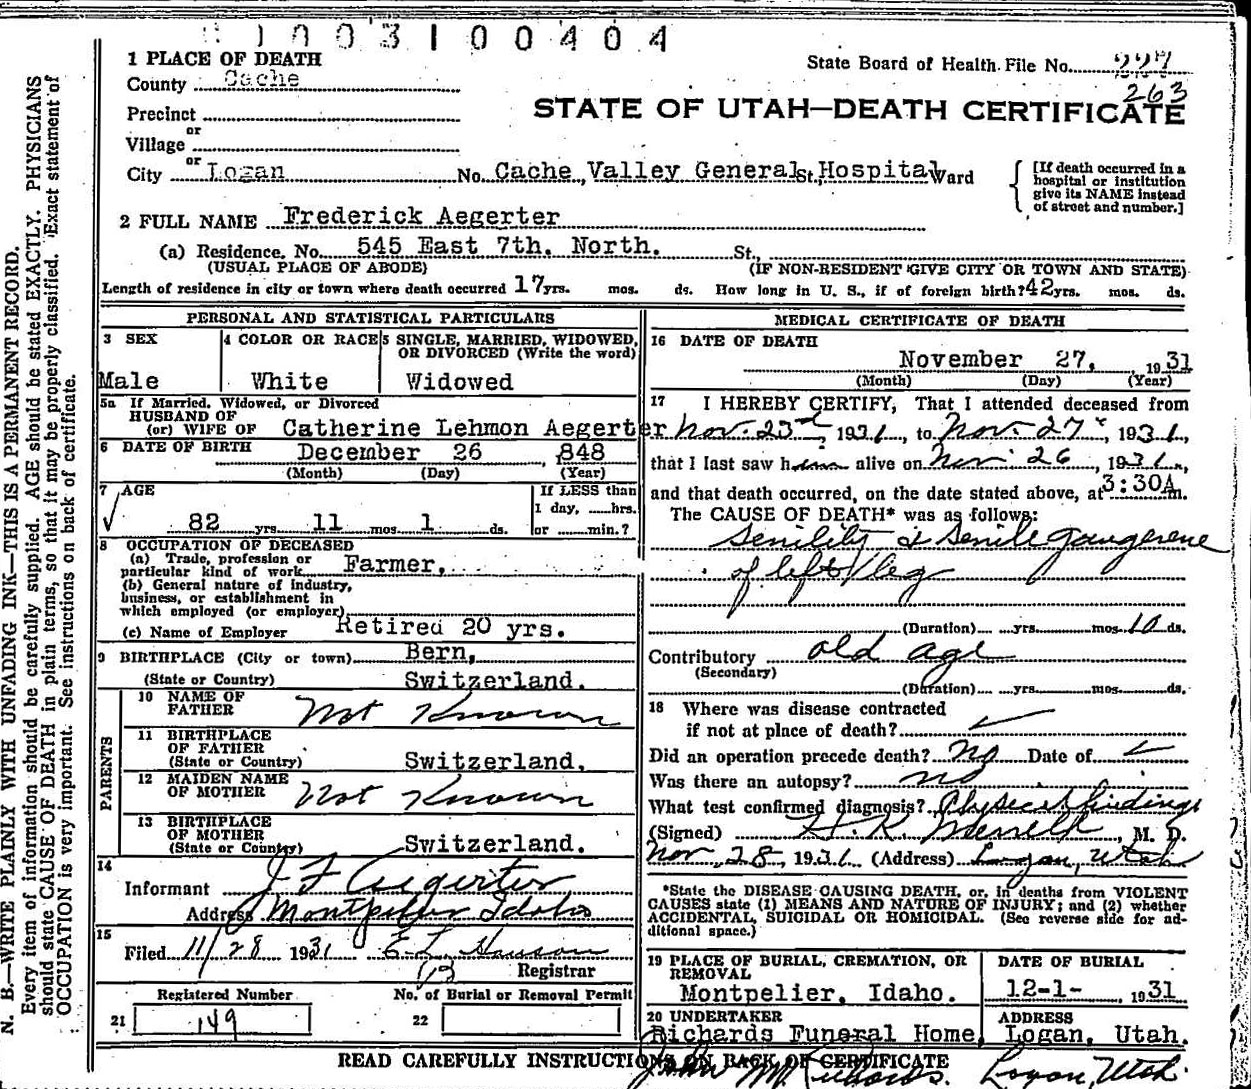 1003100404
1 PLACE OF DEATH
State Board of Health File No. 227
County Cache
263
STATE OF UTAH—DEATH CERTIFICATE
Precinct
or
Village
or
City Logan No. Cache Valley General St. Hospital Ward
[If death occurred in a
hospital or institution
give its NAME instead
of street and number.]
2 FULL NAME Frederick Aegerter
(a) Residence. No. 545 East 7th. North. St.,
(USUAL PLACE OF ABODE) (IF NON-RESIDENT GIVE CITY OR TOWN AND STATE)
Length of residence in city or town where death occurred 17 yrs. mos. ds. How long in U. S., if of foreign birth? 42 yrs. mos. ds.
PERSONAL AND STATISTICAL PARTICULARS
3 SEX
Male
4 COLOR OR RACE
White
5 SINGLE, MARRIED, WIDOWED,
OR DIVORCED (Write the word)
Widowed
5a If Married, Widowed, or Divorced
HUSBAND OF
(or) WIFE OF Catherine Lehmon Aegerter
6 DATE OF BIRTH December 26, 848
(Month) (Day) (Year)
7 AGE
82 yrs. 11 mos. 1 ds.
If LESS than
1 day, ......hrs.
or ......min.?
8 OCCUPATION OF DECEASED
(a) Trade, profession or
particular kind of work Farmer.
(b) General nature of industry,
business, or establishment in
which employed (or employer)
(c) Name of Employer Retired 20 yrs.
9 BIRTHPLACE (City or town) Bern,
(State or Country) Switzerland.
PARENTS
10 NAME OF
FATHER Not Known
11 BIRTHPLACE
OF FATHER
(State or Country) Switzerland.
12 MAIDEN NAME
OF MOTHER Not Known
13 BIRTHPLACE
OF MOTHER
(State or Country) Switzerland.
14
Informant J F Aegerter
Address Montpelier Idaho
15
Filed 11/28 1931 E L Hanson
Registrar
Registered Number
21 149
No. of Burial or Removal Permit
22
MEDICAL CERTIFICATE OF DEATH
16 DATE OF DEATH
November 27, 1931
(Month) (Day) (Year)
17 I HEREBY CERTIFY, That I attended deceased from
Nov. 23rd, 1931, to Nov. 27, 1931,
that I last saw him alive on Nov. 26, 1931,
and that death occurred, on the date stated above, at 3:30A m.
The CAUSE OF DEATH* was as follows:
Senility & Senile gangerene
of left leg
(Duration) yrs. mos. 10 ds.
Contributory old age
(Secondary)
(Duration) yrs. mos. ds.
18 Where was disease contracted
if not at place of death?
Did an operation precede death? No Date of
Was there an autopsy? no
What test confirmed diagnosis? Physical findings
(Signed) H. K. Merrell, M. D.
Nov. 28, 1931 (Address) Logan, Utah
*State the DISEASE CAUSING DEATH, or, in deaths from VIOLENT
CAUSES state (1) MEANS AND NATURE OF INJURY; and (2) whether
ACCIDENTAL, SUICIDAL OR HOMICIDAL. (See reverse side for ad-
ditional space.)
19 PLACE OF BURIAL, CREMATION, OR
REMOVAL
Montpelier, Idaho.
DATE OF BURIAL
12-1-, 1931
20 UNDERTAKER
Richards Funeral Home
ADDRESS
Logan, Utah.
READ CAREFULLY INSTRUCTIONS ON BACK OF CERTIFICATE
John M. Richards. Logan, Utah.
N. B.—WRITE PLAINLY WITH UNFADING INK—THIS IS A PERMANENT RECORD.
Every item of information should be carefully supplied. AGE should be stated EXACTLY. PHYSICIANS
should state CAUSE OF DEATH in plain terms, so that it may be properly classified. Exact statement of
OCCUPATION is very important. See instructions on back of certificate.